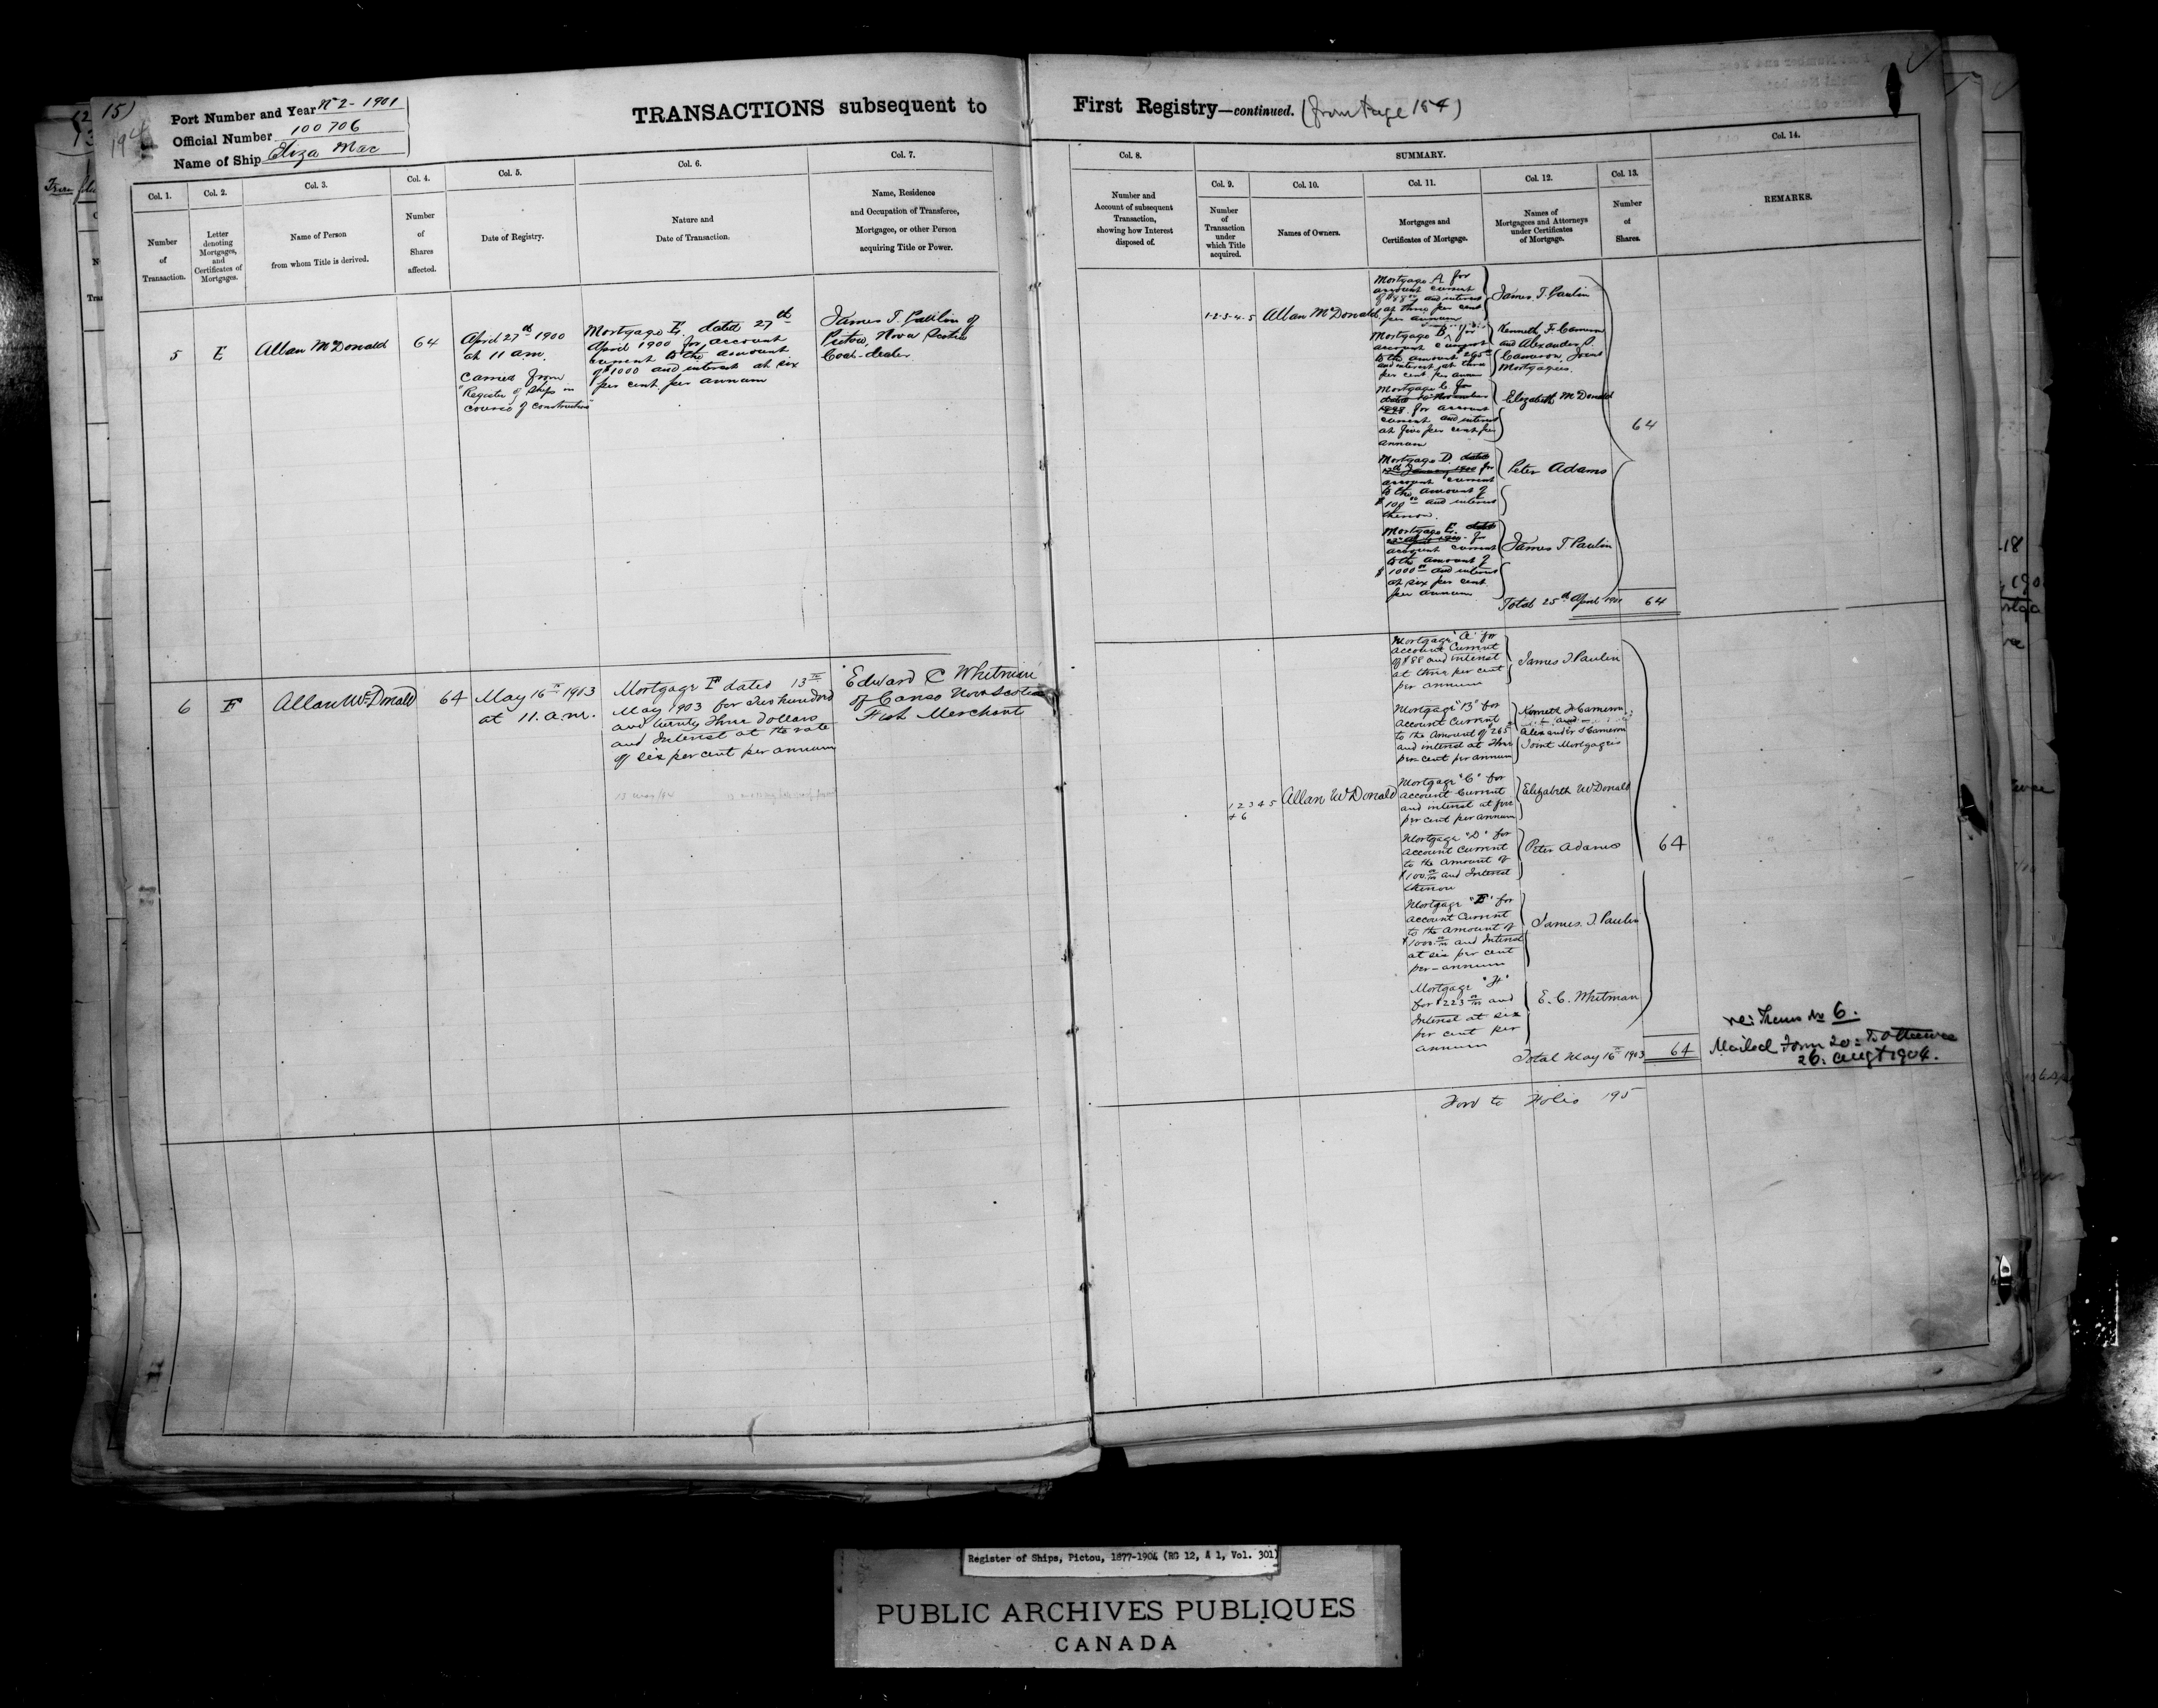 15)
194
Port Number and Year No 2 - 1901
Official Number 100706
Name of Ship Eliza Mac
TRANSACTIONS subsequent to
First Registry—continued. (from page 184)
Col. 1.
Number
of
Transaction.
Col. 2.
Letter
denoting
Mortgages,
and
Certificates of
Mortgages.
Col. 3.
Name of Person
from whom Title is derived.
Col. 4.
Number
of
Shares
affected.
Col. 5.
Date of Registry.
Col. 6.
Nature and
Date of Transaction.
Col. 7.
Name, Residence
and Occupation of Transferee,
Mortgagee, or other Person
acquiring Title or Power.
Col. 8.
Number and
Account of subsequent
Transaction,
showing how Interest
disposed of.
SUMMARY.
Col. 9.
Number
of
Transaction
under
which Title
acquired.
Col. 10.
Names of Owners.
Col. 11.
Mortgages and
Certificates of Mortgage.
Col. 12.
Names of
Mortgagees and Attorneys
under Certificates
of Mortgage.
Col. 13.
Number
of
Shares.
Col. 14.
REMARKS.
5
E
Allan McDonald
64
April 27th 1900
at 11 am.
Carried from
"Register of Ships in
course of construction"
Mortgage E. dated 27th
April 1900 for account
current to the amount
of $1000 and interest at six
per cent per annum
James T. Paulin of
Pictou, Nova Scotia
Coal-dealer
1-2-3-4-5
Allan McDonald
Mortgage A for
account current
of $88 and interest
at three per cent
per annum
James T. Paulin
Mortgage B, for
account current
to the amount $265
and interest at three
per cent per annum
Kenneth F. Cameron
and Alexander S.
Cameron, Joint
Mortgagees.
Mortgage C for
dated 16 November
1898 for account
current and interest
at five per cent per
annum
Elizabeth McDonald
Mortgage D. dated
January 1900 for
account current
to the amount of
$100 and interest
thereon.
Peter Adams
Mortgage E. dated
for
account current
to the amount of
$1000 and interest
at six per cent
per annum
James T Paulin
64
Total 25th April 1901 64
6
F
Allan McDonald
64
May 16th 1903
at 11. a.m.
Mortgage F dated 13th
May 1903 for two hundred
and twenty three dollars
and Interest at the rate
of six per cent per annum
Edward C Whitman
of Canso Nova Scotia
Fish Merchant
1 2 3 4 5
+ 6
Allan McDonald
Mortgage "A" for
account Current
of $88 and interest
at three per cent
per annum
James T Paulin
Mortgage "B" for
account Current
to the Amount of $265
and interest at three
per cent per annum
Kenneth F Cameron
and
Alexander S Cameron
Joint Mortgagees
Mortgage "C" for
account Current
and interest at five
per cent per annum
Elizabeth McDonald
Mortgage "D" for
account Current
to the amount of
$100 and Interest
thereon
Peter Adams
Mortgage "E" for
account Current
to the amount of
$1000 and Interest
at six per cent
per-annum
James. T. Paulin
Mortgage "F"
for $223 and
Interest at six
per cent per
annum
E. C. Whitman
64
Total May 16th 1903 64
re: Trans No 6.
Mailed Form 20 = To Ottawa
26. Augt 1904.
Ford to Folio 195
Register of Ships, Pictou, 1877-1904 (RG 12, A 1, Vol. 301)
PUBLIC ARCHIVES PUBLIQUES
CANADA